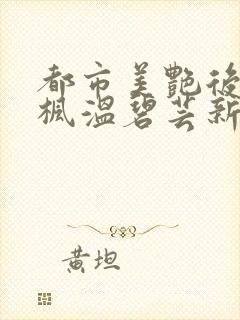 都市美艷後
楓溫碧芸新
黃坦